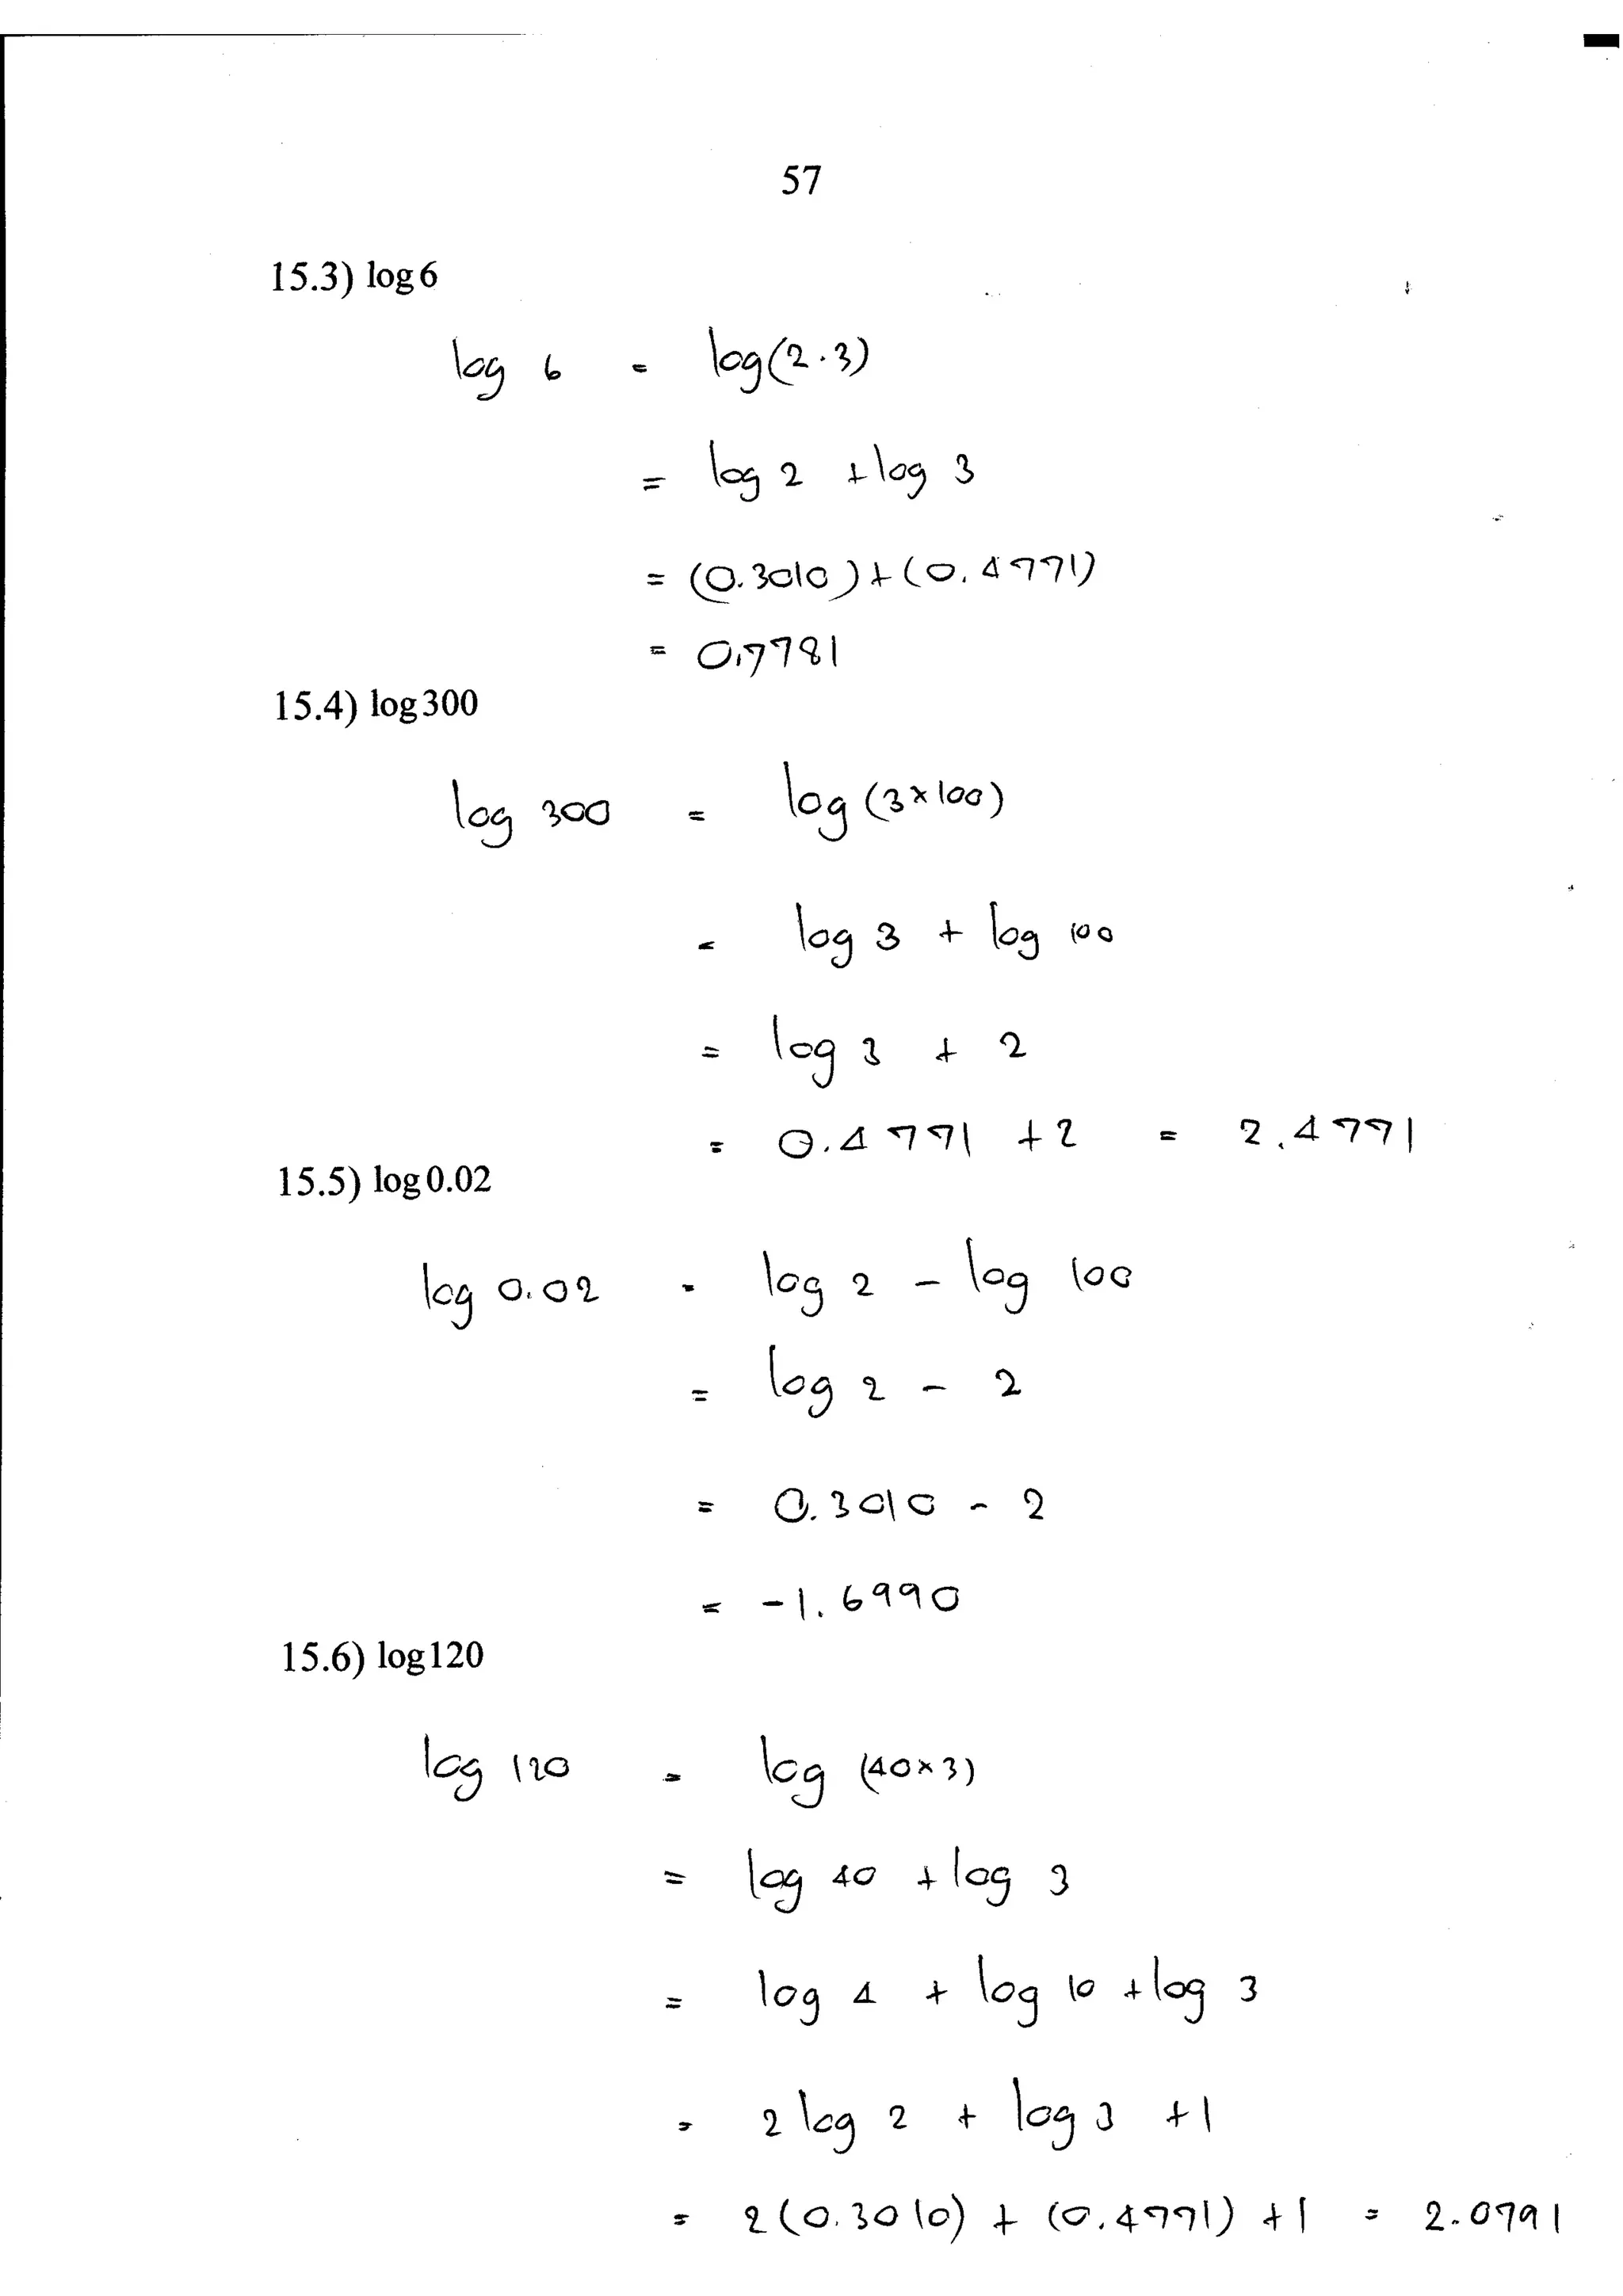 57
15.3) log6
log 6 = log(2.3)
= log 2 + log 3
= (0.3010) + (0.4771)
= 0.7781
15.4) log300
log 300 = log (3×100)
= log 3 + log 100
= log 3 + 2
= 0.4771 + 2 = 2.4771
15.5) log0.02
log 0.02 = log 2 - log 100
= log 2 - 2
= 0.3010 - 2
= -1.6990
15.6) log120
log 120 = log (40×3)
= log 40 + log 3
= log 4 + log 10 + log 3
= 2 log 2 + log 3 + 1
= 2(0.3010) + (0.4771) + 1 = 2.0791